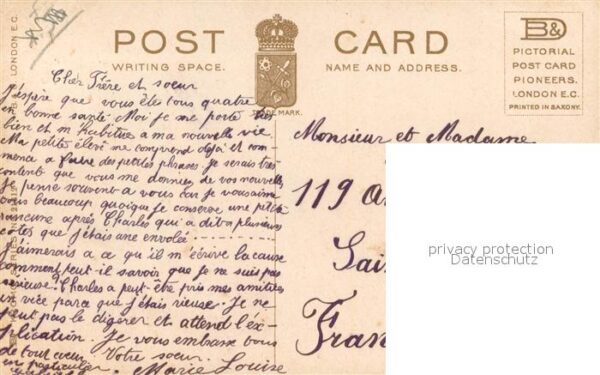 LONDON E.C.
POST CARD
WRITING SPACE.
NAME AND ADDRESS.
TRADE MARK.
B&D
PICTORIAL
POST CARD
PIONEERS.
LONDON E.C.
PRINTED IN SAXONY.
Cher Frère et soeur
J'éspère que vous êtes tous quatre
en bonne santé Moi je me porte très
bien et m'habitue a ma nouvelle vie
Ma petite élève me comprend déjà et com
mence a faire des petites phrases je serais très
contente que vous me donniez de vos nouvelles
je pense souvent a vous car je vous aime
tous beaucoup quoique je conserve une petite
rancune après Charles qui a dit a plusieurs
côtés que j'étais une envolée
J'aimerais a ce qu'il m'écrive la cause
comment peut-il savoir que je ne suis pas
sérieuse. Charles a peut-être pris mes amitiés
en vice parce que j'étais rieuse. Je ne
peut pas le digérer et attend l'éx-
plication. Je vous embrasse tous
de tout coeur. Votre soeur.
en particulier
Marie Louise
Monsieur et Madame
119
Sai
Fran
privacy protection
Datenschutz